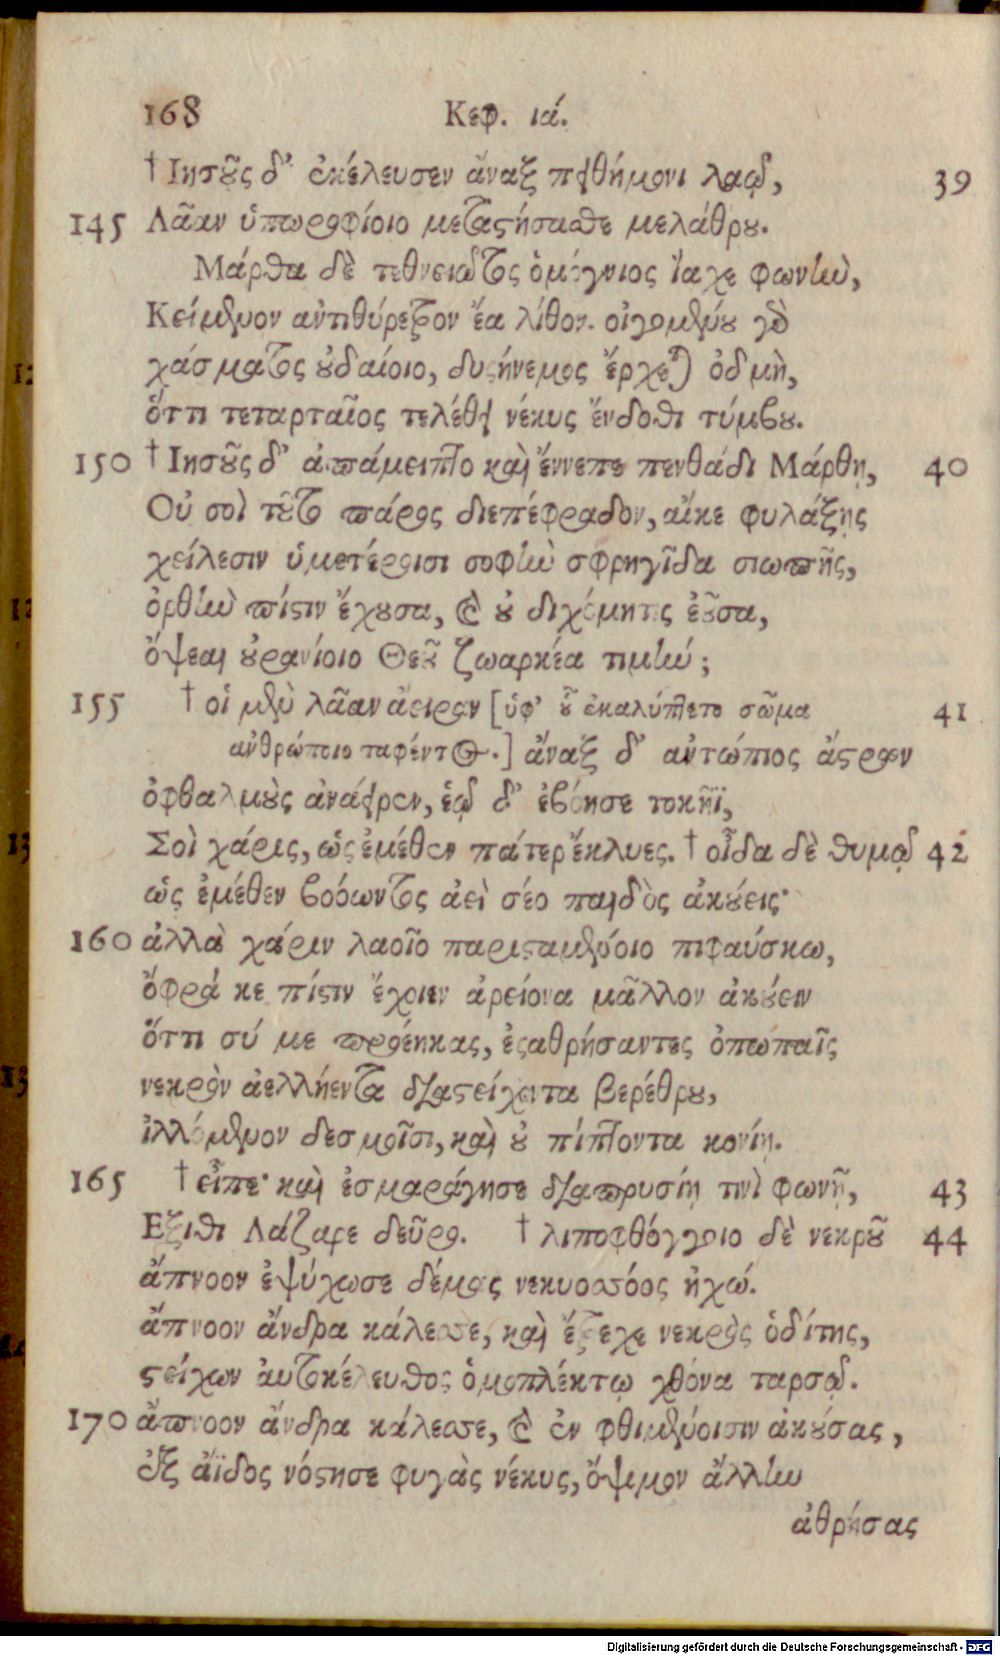 168 Κεφ. ιά.
† Ιησοῦς δ' ἐκέλευσεν ἄναξ πειθήμονι λαῷ, 39
145 Λᾶαν ὑπωροφίοιο μεταστήσασθε μελάθρου.
Μάρθα δὲ τεθνειῶτος ὁμόγνιος ἴαχε φωνὴν,
Κείμενον ἀντιθύρετρον ἔα λίθον. οἰγομένου γὰρ
χάσματος οὐδαίοιο, δυσήνεμος ἔρχεται ὀδμὴ,
ὅττι τεταρταῖος τελέθει νέκυς ἔνδοθι τύμβου.
150 † Ιησοῦς δ' ἀπάμειπτο καὶ ἔννεπε πενθάδι Μάρθῃ, 40
Οὐ σοὶ τοῦτο πάρος διεπέφραδον, αἴκε φυλάξῃς
χείλεσιν ὑμετέροισι σοφὴν σφρηγῖδα σιωπῆς,
ὀρθὴν πίστιν ἔχουσα, καὶ οὐ διχόμητις ἐοῦσα,
ὄψεαι οὐρανίοιο Θεοῦ ζωαρκέα τιμήν;
155 † οἱ μὲν λᾶαν ἄειραν [ὑφ' οὗ ἐκαλύπτετο σῶμα 41
ἀνθρώποιο ταφέντος.] ἄναξ δ' ἀντώπιος ἄστρων
ὀφθαλμοὺς ἀνάειρεν, ἑῷ δ' ἐβόησε τοκῆϊ,
Σοὶ χάρις, ὡς ἐμέθεν πάτερ ἔκλυες. † οἶδα δὲ θυμῷ 42
ὡς ἐμέθεν βοόωντος ἀεὶ σέο παιδὸς ἀκούεις·
160 ἀλλὰ χάριν λαοῖο παρισταμένοιο πιφαύσκω,
ὄφρά κε πίστιν ἔχοιεν ἀρείονα μᾶλλον ἀκούειν
ὅττι σύ με προέηκας, ἐσαθρήσαντες ὀπωπαῖς
νεκρὸν ἀελλήεντα διαστείχοντα βερέθρου,
ἰλλόμενον δεσμοῖσι, καὶ οὐ πίπτοντα κονίῃ.
165 † εἶπε· καὶ ἐσμαράγησε διαπρυσίῃ τινὶ φωνῇ, 43
Εξιθι Λάζαρε δεῦρο. † λιποφθόγγοιο δὲ νεκροῦ 44
ἄπνοον ἐψύχωσε δέμας νεκυοσσόος ἠχώ.
ἄπνοον ἄνδρα κάλεσσε, καὶ ἔξεχε νεκρὸς ὁδίτης,
στείχων αὐτοκέλευθος ὁμοπλέκτῳ χθόνα ταρσῷ.
170 ἄπνοον ἄνδρα κάλεσσε, καὶ ἐν φθιμένοισιν ἀκούσας,
ἐξ ἄϊδος νόστησε φυγὰς νέκυς, ὄψιμον ἄλλην
ἀθρήσας
Digitalisierung gefördert durch die Deutsche Forschungsgemeinschaft - DFG